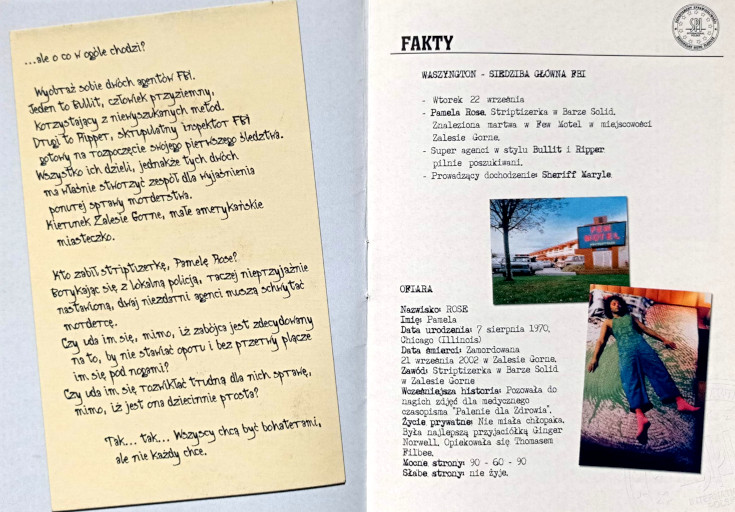 ...ale o co w ogóle chodzi?
Wyobraź sobie dwóch agentów FBI.
Jeden to Bullit, człowiek przyziemny,
korzystający z niewyszukanych metod.
Drugi to Ripper, skrupulatny inspektor FBI
gotowy na rozpoczęcie swojego pierwszego śledztwa.
Wszystko ich dzieli, jednakże tych dwóch
ma właśnie stworzyć zespół dla wyjaśnienia
ponurej sprawy morderstwa.
Kierunek Zalesie Gorne, małe amerykańskie
miasteczko.
Kto zabił striptizerkę, Pamelę Rose?
Borykając się z lokalną policją, raczej nieprzyjaźnie
nastawioną, dwaj niezdarni agenci muszą schwytać
mordercę.
Czy uda im się, mimo, iż zabójca jest zdecydowany
na to, by nie stawiać oporu i bez przerwy plącze
im się pod nogami?
Czy uda im się rozwikłać trudną dla nich sprawę,
mimo, iż jest ona dziecinnie prosta?
Tak... tak... Wszyscy chcą być bohaterami,
ale nie każdy chce.
FAKTY
WASZYNGTON - SIEDZIBA GŁÓWNA FBI
- Wtorek 22 września
- Pamela Rose. Striptizerka w Barze Solid.
Znaleziona martwa w Few Motel w miejscowości
Zalesie Gorne.
- Super agenci w stylu Bullit i Ripper
pilnie poszukiwani.
- Prowadzący dochodzenie: Sheriff Maryle.
OFIARA
Nazwisko: ROSE
Imię: Pamela
Data urodzenia: 7 sierpnia 1970,
Chicago (Illinois)
Data śmierci: Zamordowana
21 września 2002 w Zalesie Gorne.
Zawód: Striptizerka w Barze Solid
w Zalesie Gorne
Wcześniejsza historia: Pozowała do
nagich zdjęć dla medycznego
czasopisma "Palenie dla Zdrowia".
Życie prywatne: Nie miała chłopaka.
Była najlepszą przyjaciółką Ginger
Norwell. Opiekowała się Thomasem
Filbee.
Mocne strony: 90 - 60 - 90
Słabe strony: nie żyje.